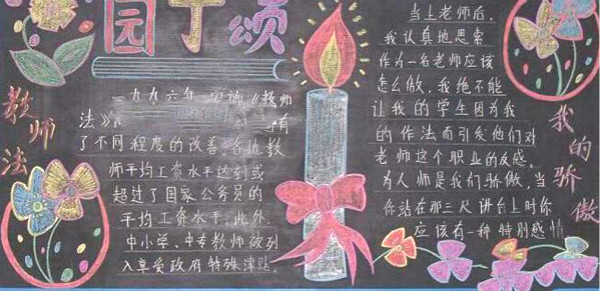 园丁颂
教师法
一九九六年
《教师
法》
有
了不同程度的改善,
教
师平均工资水平达到或
超过了国家公务员的
平均工资水平,此外,
中小学、中专教师被列
入享受政府特殊津贴
当上老师后,
我认真地思索
作为一名老师应该
怎么做,我绝不能
让我的学生因为我
的作法而引发他们对
老师这个职业的反感,
为人师是我们骄傲,当
你站在那三尺讲台上时你
应该有一种特别感情
我的骄傲